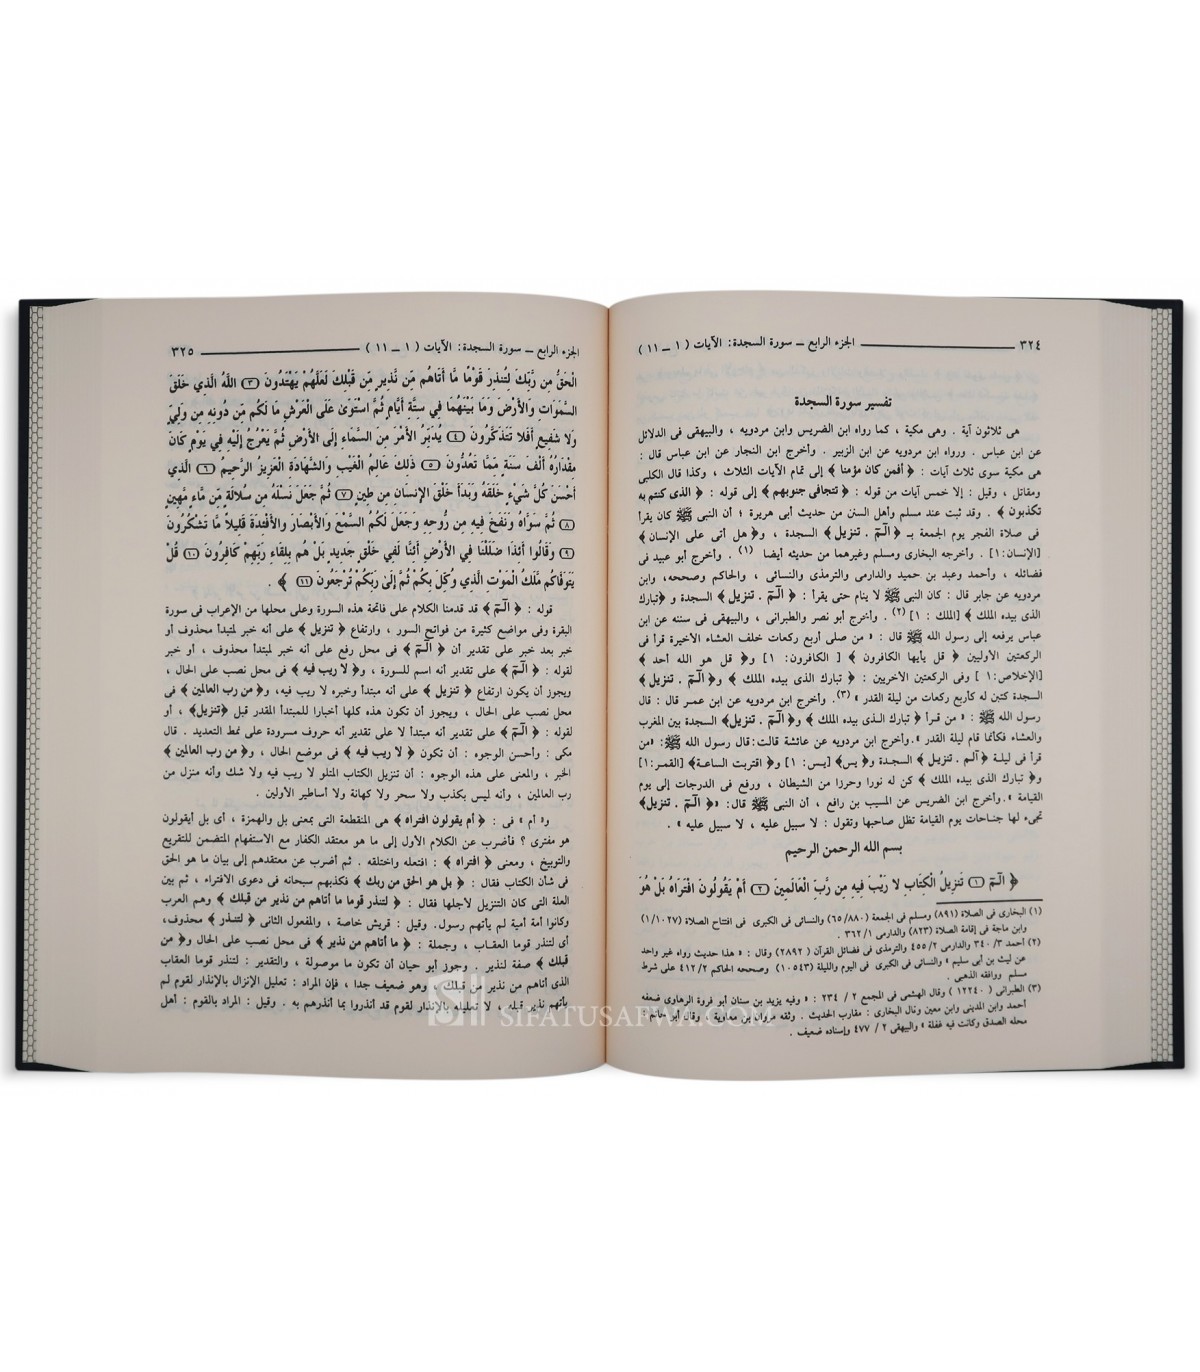 ٣٢٤ الجزء الرابع ــ سورة السجدة: الآيات ( ١ ــ ١١ )
تفسير سورة السجدة
هى ثلاثون آية . وهى مكية ، كما رواه ابن الضريس وابن مردويه ، والبيهقى فى الدلائل
عن ابن عباس . ورواه ابن مردويه عن ابن الزبير . وأخرج ابن النجار عن ابن عباس قال :
هى مكية سوى ثلاث آيات : ﴿ أفمن كان مؤمنا ﴾ إلى تمام الآيات الثلاث ، وكذا قال الكلبى
ومقاتل ، وقيل : إلا خمس آيات من قوله : ﴿ تتجافى جنوبهم ﴾ إلى قوله : ﴿ الذى كنتم به
تكذبون ﴾ . وقد ثبت عند مسلم وأهل السنن من حديث أبى هريرة ؛ أن النبى ﷺ كان يقرأ
فى صلاة الفجر يوم الجمعة بـ ﴿ الٓـمٓ . تنزيل ﴾ السجدة ، و﴿ هل أتى على الإنسان ﴾
[الإنسان:١] . وأخرجه البخارى ومسلم وغيرهما من حديثه أيضا (١) . وأخرج أبو عبيد فى
فضائله ، وأحمد وعبد بن حميد والدارمى والترمذى والنسائى ، والحاكم وصححه، وابن
مردويه عن جابر قال : كان النبى ﷺ لا ينام حتى يقرأ : ﴿ الٓـمٓ . تنزيل ﴾ السجدة و ﴿تبارك
الذى بيده الملك ﴾ [الملك : ١] (٢) . وأخرج أبو نصر والطبرانى ، والبيهقى فى سننه عن ابن
عباس يرفعه إلى رسول الله ﷺ قال : « من صلى أربع ركعات خلف العشاء الأخيرة قرأ فى
الركعتين الأوليين ﴿ قل يأيها الكافرون ﴾ [ الكافرون: ١] و﴿ قل هو الله أحد ﴾
[الإخلاص:١ ] وفى الركعتين الأخريين : ﴿ تبارك الذى بيده الملك ﴾ و﴿ الٓـمٓ . تنزيل ﴾
السجدة كتبن له كأربع ركعات من ليلة القدر » (٣). وأخرج ابن مردويه عن ابن عمر قال : قال
رسول الله ﷺ : « من قرأ ﴿ تبارك الذى بيده الملك ﴾ و﴿ الٓـمٓ . تنزيل﴾ السجدة بين المغرب
والعشاء فكأنما قام ليلة القدر ».وأخرج ابن مردويه عن عائشة قالت:قال رسول الله ﷺ: «من
قرأ فى ليلة ﴿ الٓـم . تنزيل ﴾ السجدة و﴿ يس﴾ [يس: ١] و﴿ اقتربت الساعة﴾ [القمر:١]
و﴿ تبارك الذى بيده الملك ﴾ كن له نورا وحرزا من الشيطان ، ورفع فى الدرجات إلى يوم
القيامة ».وأخرج ابن الضريس عن المسيب بن رافع ، أن النبى ﷺ قال: «﴿ الٓـمٓ . تنزيل﴾
تجىء لها جناحات يوم القيامة تظل صاحبها وتقول : لا سبيل عليه ، لا سبيل عليه » .
بسم الله الرحمن الرحيم
﴿ الٓـمٓ ١ تَنزِيلُ الْكِتَابِ لا رَيْبَ فِيهِ مِن رَّبِّ الْعَالَمِينَ ٢ أَمْ يَقُولُونَ افْتَرَاهُ بَلْ هُوَ
(١) البخارى فى الصلاة (٨٩١) ومسلم فى الجمعة (٨٨٠/ ٦٥) والنسائى فى الكبرى فى افتتاح الصلاة (١/١٠٢٧)
وابن ماجة فى إقامة الصلاة (٨٢٣) والدارمى ٣٦٢/١ .
(٢) أحمد ٣/ ٣٤٠ والدارمى ٢/ ٤٥٥ والترمذى فى فضائل القرآن ( ٢٨٩٢) وقال : « هذا حديث رواه غير واحد
عن ليث بن أبى سليم » والنسائى فى الكبرى فى اليوم والليلة (١٠٥٤٣) وصححه الحاكم ٤١٢/٢ على شرط
مسلم ووافقه الذهبى .
(٣) الطبرانى ( ١٢٢٤٠ ) وقال الهيثمى فى المجمع ٢ / ٢٣٤ : « وفيه يزيد بن سنان أبو فروة الرهاوى ضعفه
أحمد وابن المدينى وابن معين وقال البخارى : مقارب الحديث . وثقه مروان بن معاوية . وقال أبو حاتم :
محله الصدق وكانت فيه غفلة » والبيهقى ٢ / ٤٧٧ وإسناده ضعيف .
الجزء الرابع ــ سورة السجدة: الآيات ( ١ ــ ١١ ) ٣٢٥
الْحَقُّ مِن رَّبِّكَ لِتُنذِرَ قَوْمًا مَّا أَتَاهُم مِّن نَّذِيرٍ مِّن قَبْلِكَ لَعَلَّهُمْ يَهْتَدُونَ ٣ اللَّهُ الَّذِي خَلَقَ
السَّمَوَاتِ وَالأَرْضَ وَمَا بَيْنَهُمَا فِي سِتَّةِ أَيَّامٍ ثُمَّ اسْتَوَىٰ عَلَى الْعَرْشِ مَا لَكُم مِّن دُونِهِ مِن وَلِيٍّ
وَلا شَفِيعٍ أَفَلا تَتَذَكَّرُونَ ٤ يُدَبِّرُ الأَمْرَ مِنَ السَّمَاءِ إِلَى الأَرْضِ ثُمَّ يَعْرُجُ إِلَيْهِ فِي يَوْمٍ كَانَ
مِقْدَارُهُ أَلْفَ سَنَةٍ مِّمَّا تَعُدُّونَ ٥ ذَلِكَ عَالِمُ الْغَيْبِ وَالشَّهَادَةِ الْعَزِيزُ الرَّحِيمُ ٦ الَّذِي
أَحْسَنَ كُلَّ شَيْءٍ خَلَقَهُ وَبَدَأَ خَلْقَ الإِنسَانِ مِن طِينٍ ٧ ثُمَّ جَعَلَ نَسْلَهُ مِن سُلالَةٍ مِّن مَّاءٍ مَّهِينٍ
٨ ثُمَّ سَوَّاهُ وَنَفَخَ فِيهِ مِن رُّوحِهِ وَجَعَلَ لَكُمُ السَّمْعَ وَالأَبْصَارَ وَالأَفْئِدَةَ قَلِيلاً مَّا تَشْكُرُونَ
٩ وَقَالُوا أَئِذَا ضَلَلْنَا فِي الأَرْضِ أَئِنَّا لَفِي خَلْقٍ جَدِيدٍ بَلْ هُم بِلِقَاءِ رَبِّهِمْ كَافِرُونَ ١٠ قُلْ
يَتَوَفَّاكُم مَّلَكُ الْمَوْتِ الَّذِي وُكِّلَ بِكُمْ ثُمَّ إِلَىٰ رَبِّكُمْ تُرْجَعُونَ ١١ ﴾ .
قوله : ﴿ الٓـمٓ ﴾ قد قدمنا الكلام على فاتحة هذه السورة وعلى محلها من الإعراب فى سورة
البقرة وفى مواضع كثيرة من فواتح السور ، وارتفاع ﴿ تنزيل ﴾ على أنه خبر لمبتدأ محذوف أو
خبر بعد خبر على تقدير أن ﴿ الٓـمٓ ﴾ فى محل رفع على أنه خبر لمبتدأ محذوف ، أو خبر
لقوله : ﴿ الٓـمٓ ﴾ على تقدير أنه اسم للسورة ، و﴿ لا ريب فيه ﴾ فى محل نصب على الحال ،
ويجوز أن يكون ارتفاع ﴿ تنزيل ﴾ على أنه مبتدأ وخبره لا ريب فيه، و﴿من رب العالمين ﴾ فى
محل نصب على الحال ، ويجوز أن تكون هذه كلها أخبارا للمبتدأ المقدر قبل ﴿تنزيل﴾ ، أو
لقوله : ﴿ الٓـمٓ ﴾ على تقدير أنه مبتدأ لا على تقدير أنه حروف مسرودة على نمط التعديد . قال
مكى : وأحسن الوجوه : أن تكون ﴿ لا ريب فيه ﴾ فى موضع الحال ، و﴿ من رب العالمين ﴾
الخبر ، والمعنى على هذه الوجوه : أن تنزيل الكتاب المتلو لا ريب فيه ولا شك وأنه منزل من
رب العالمين ، وأنه ليس بكذب ولا سحر ولا كهانة ولا أساطير الأولين .
و« أم » فى : ﴿ أم يقولون افتراه ﴾ هى المنقطعة التى بمعنى بل والهمزة ، أى بل أيقولون
هو مفترى ؟ فأضرب عن الكلام الأول إلى ما هو معتقد الكفار مع الاستفهام المتضمن للتقريع
والتوبيخ ، ومعنى ﴿ افتراه ﴾ : افتعله واختلقه . ثم أضرب عن معتقدهم إلى بيان ما هو الحق
فى شأن الكتاب فقال : ﴿ بل هو الحق من ربك ﴾ فكذبهم سبحانه فى دعوى الافتراء ، ثم بين
العلة التى كان التنزيل لاجلها فقال : ﴿ لتنذر قوما ما أتاهم من نذير من قبلك ﴾ وهم العرب
وكانوا أمة أمية لم يأتهم رسول. وقيل : قريش خاصة ، والمفعول الثانى ﴿ لتنذر ﴾ محذوف،
أى لتنذر قوما العقاب ، وجملة : ﴿ ما أتاهم من نذير ﴾ فى محل نصب على الحال و﴿ من
قبلك ﴾ صفة لنذير . وجوز أبو حيان أن تكون ما موصولة ، والتقدير : لتنذر قوما العقاب
الذى أتاهم من نذير من قبلك ، وهو ضعيف جدا ، فإن المراد : تعليل الإنزال بالإنذار لقوم لم
يأتهم نذير قبله ، لا تعليله بالإنذار لقوم قد أنذروا بما أنذرهم به . وقيل : المراد بالقوم : أهل
SIFATUSAFWA.COM